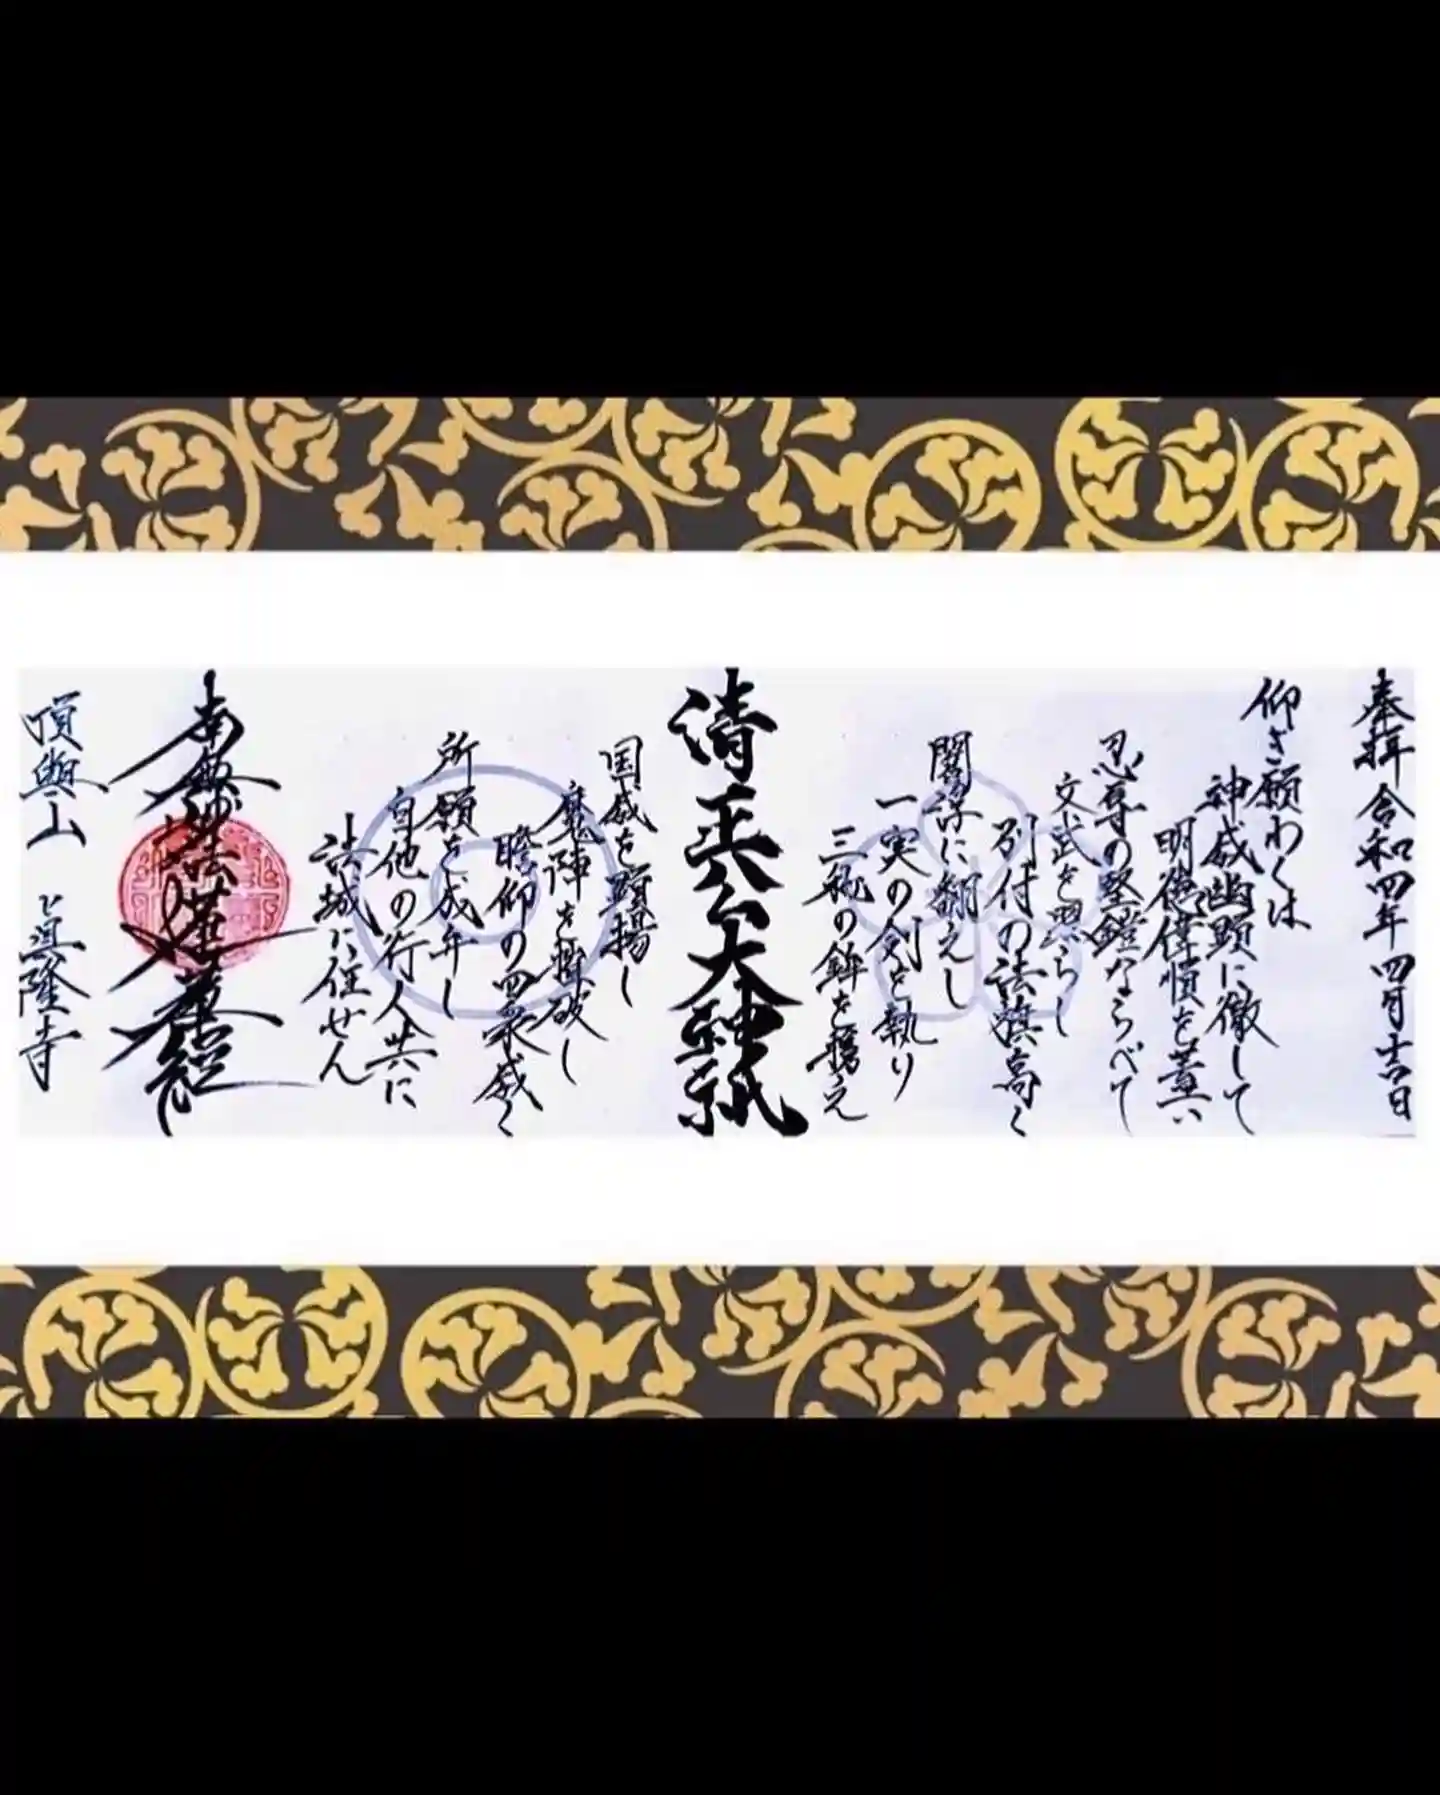 奉拝 令和四年 四月吉日
仰ぎ願わくは
神威幽顕に徹して
明徳偉慎を蓋い
忍辱の堅鎧ならべて
文武を照らし
別付の法旗高く
闇浮に翻えし
一実の剣を執り
三軌の鉾を携え
清正公大神祇
国威を顕揚し
魔陣を摧破し
瞻仰の四衆咸く
所願を成弁し
自他の行人共に
法城に住せん
南無妙法蓮華経
頂興山 眞隆寺